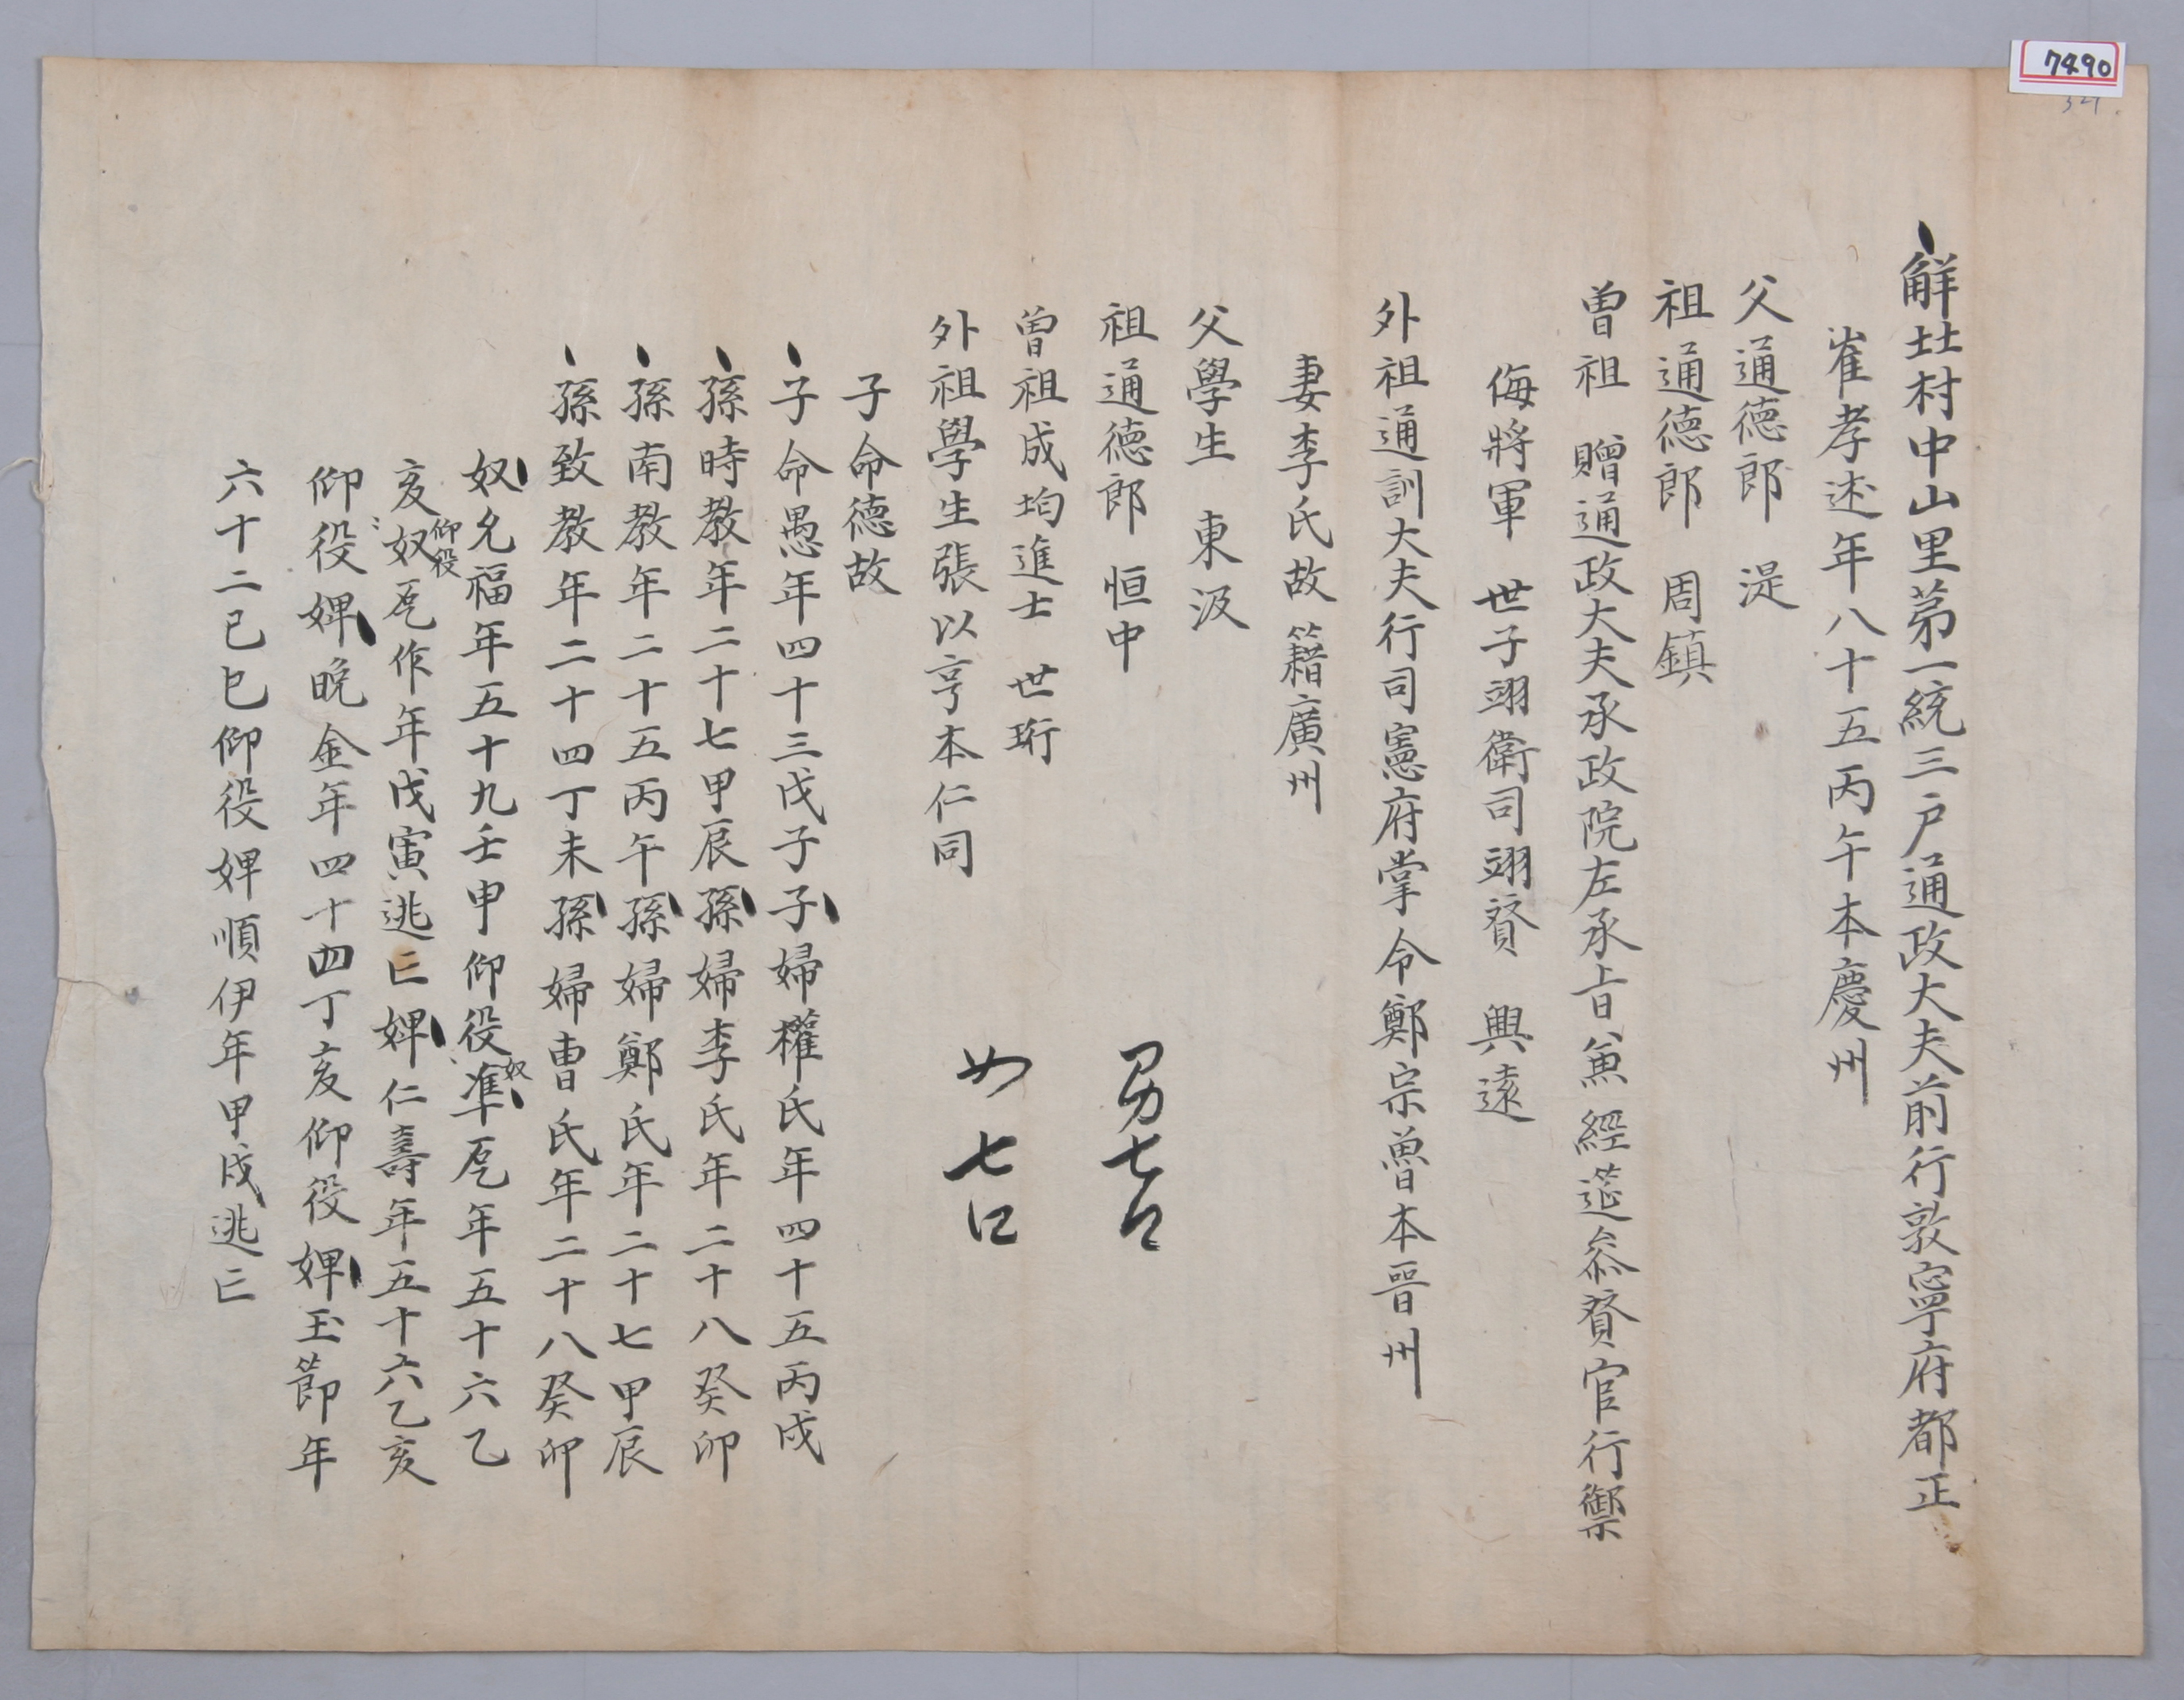 7490
觧㘳村中山里苐一統三戶通政大夫前行敦寧府都正
崔孝述年八十五丙午本慶州
父通德郎 湜
祖通德郎 周鎮
曽祖 贈通政大夫承政院左承旨兼經筵叅賛官行禦
侮將軍 世子翊衛司翊賛 興遠
外祖通訓大夫行司憲府掌令鄭宗魯本晋州
妻李氏故籍廣州
父學生 東汲
祖通德郎 恒中
曽祖成均進士 世珩
外祖學生張以亨本仁同
男七口
女七口
子命德故
子命愚年四十三戊子子婦權氏年四十五丙戌
孫時教年二十七甲辰孫婦李氏年二十八癸卯
孫南教年二十五丙午孫婦鄭氏年二十七甲辰
孫致教年二十四丁未孫婦曺氏年二十八癸卯
奴允福年五十九壬申仰役奴準㐗年五十六乙
亥仰役奴㐗作年戊寅逃亡婢仁壽年五十六乙亥
仰役婢晩金年四十四丁亥仰役婢玉節年
六十二己巳仰役婢順伊年甲戌逃亡